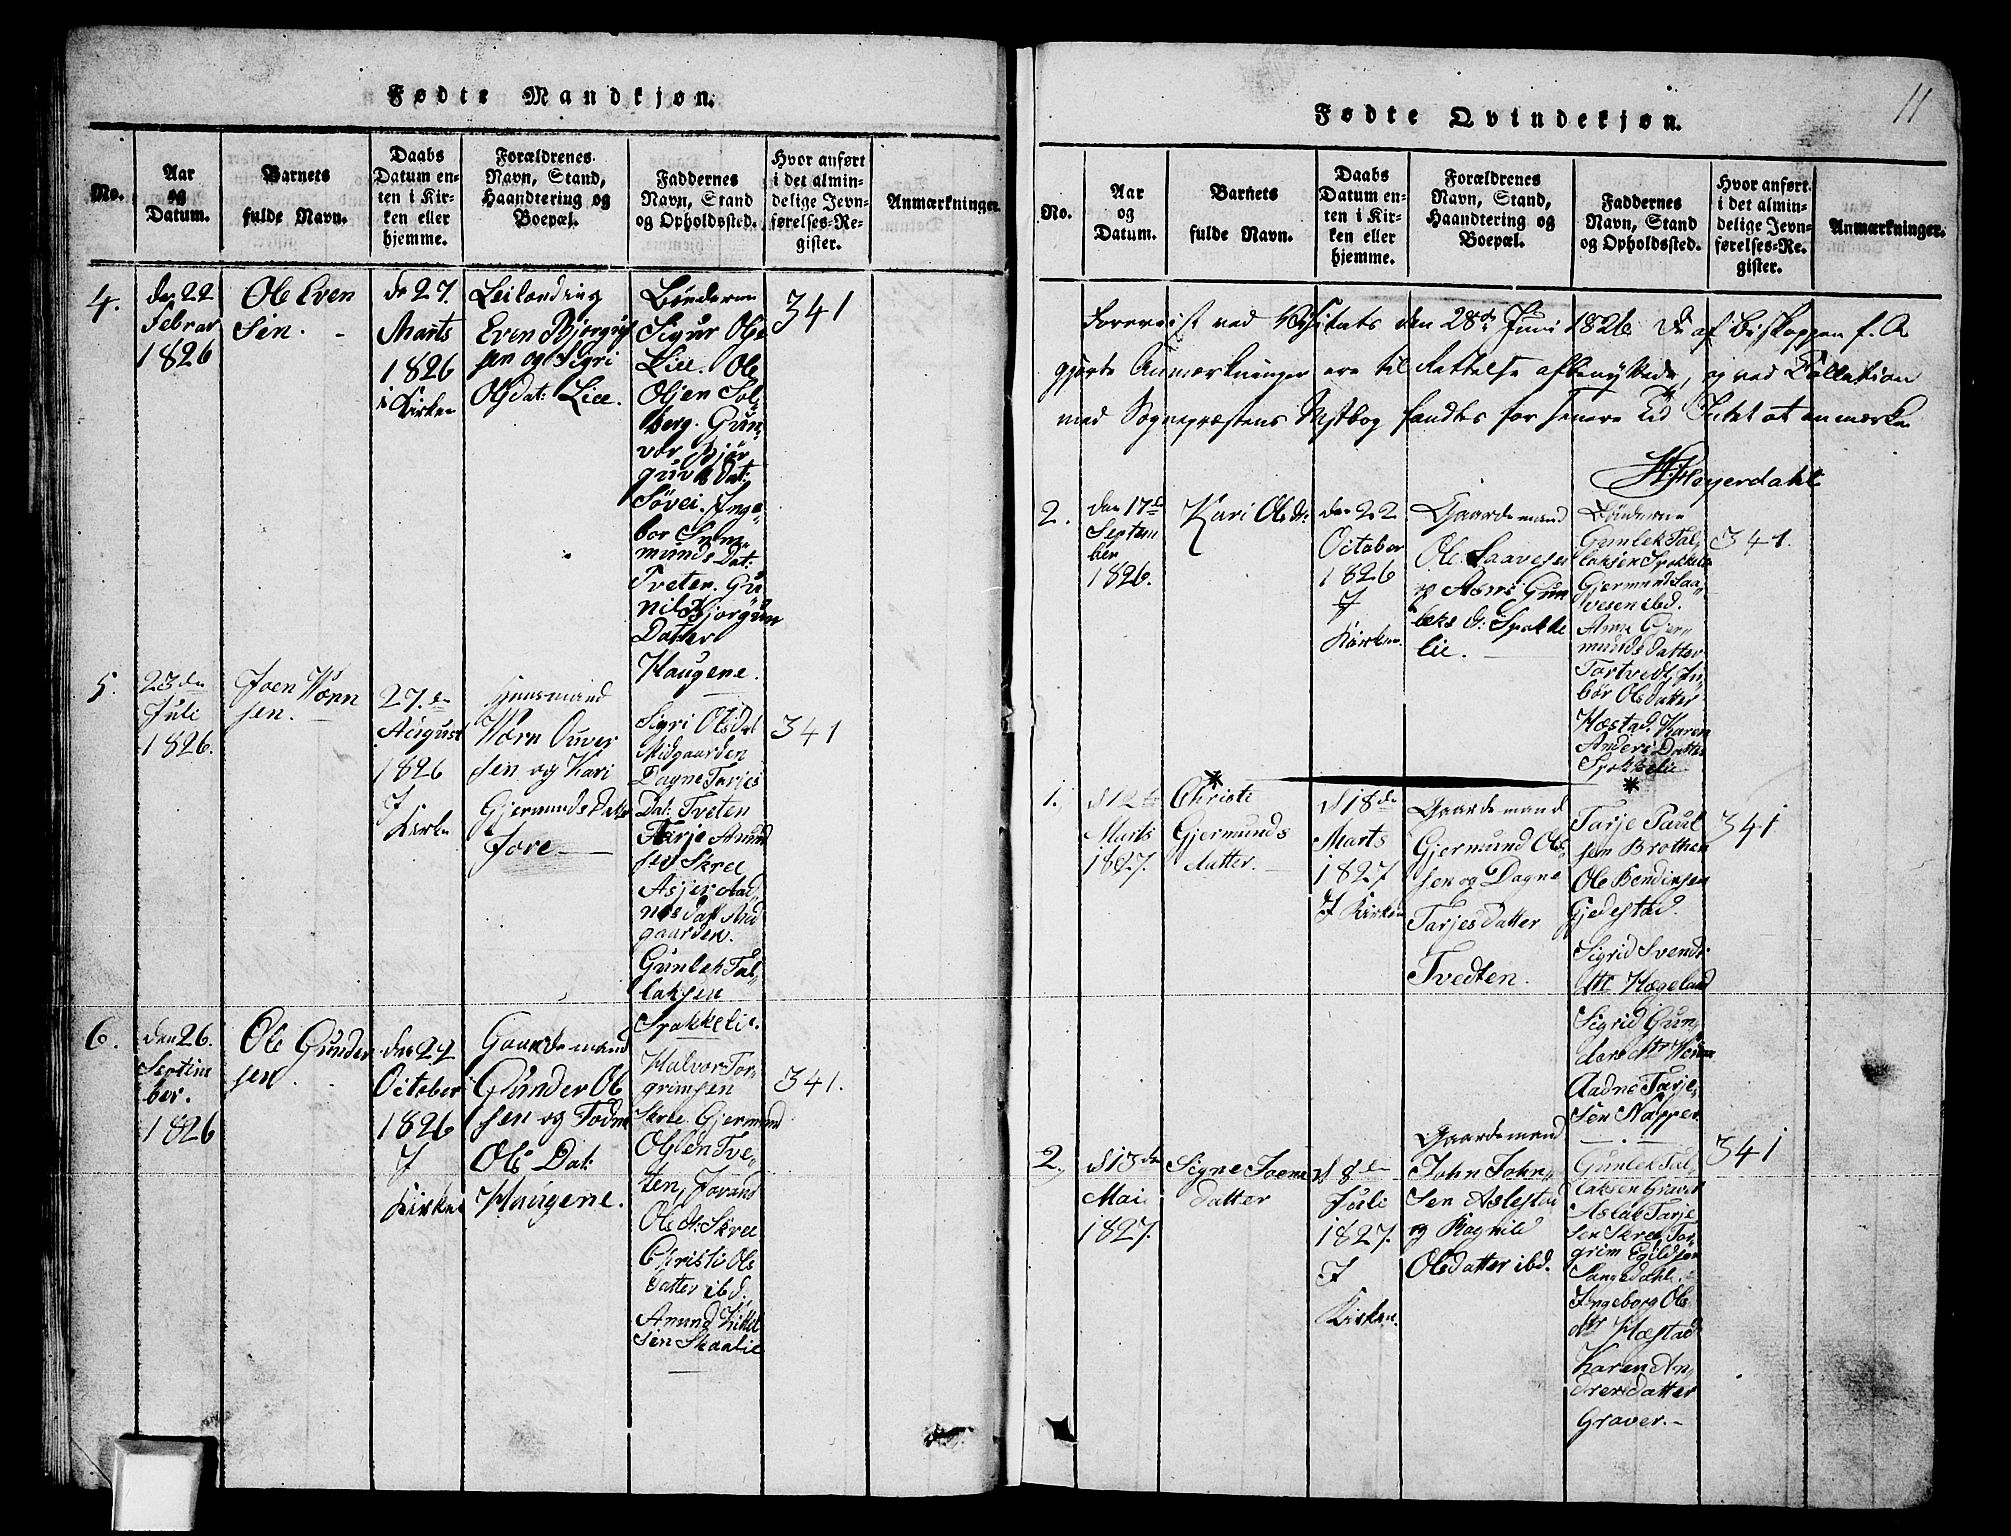 Fødte Mandkjøn.
No.
Aar
og
Datum.
Barnets
fulde Navn.
Daabs
Datum en-
ten i Kir-
ken eller
hjemme.
Forældrenes
Navn, Stand,
Haandtering og
Boepæl.
Faddernes
Navn, Stand
og Opholdssted.
Hvor anført
i det almin-
delige Jevn-
førelses-Re-
gister.
Anmærkninger.
4.
den 22
Febrar
1826
Ole Even
sen.
de 27.
Marts
1826
i Kirken
Leilending
Even Bjorguf
sen og Sigri
Olsdat: Lie.
Bønderne
Sigur Ols
Lie. Ole
Olsen Sol
berg. Gun-
vor Bjør
guvs Dat:
Søvei. Inge-
bor
munds Dat:
Tveten. Gu
nil Bjorguv
Datter
Haugene.
341
5.
23de
Juli
1826.
Joen Wørn
sen.
27.de
August
1826
I
Kirken
Huusmand
Wørn Ouver
sen og Kari
Gjermunds Datter
Fore
Sigri Olsdat
Midgaarden
Dagne Tarjes
Dat: Tveten
Tarje Amund
sen Skree
gaarden.
Gunlek Tal-
laksen
Spokkelie.
341
6.
den 26.
Septem
ber.
1826
Ole Gunder
sen.
den 22
October
1826
I
Kirken
Gaardemand
Gunder Ol
sen og Todne
Ols Dat:
Haugene.
Halvor Tor-
grimsen
Skree. Gjermund
Olsen Tve-
ten, Jorand
Ols dr: Skree
Christi Ols
Datter ibd.
Amund Kittel
sen Skaalie
341.
11
Fødte Qvindekjøn.
No.
Aar
og
Datum.
Barnets
fulde Navn.
Daabs
Datum en-
ten i Kir-
ken eller
hjemme.
Forældrenes
Navn, Stand,
Haandtering og
Boepæl.
Faddernes
Navn, Stand
og Opholdssted.
Hvor anført
i det almin-
delige Jevn-
førelses-Re-
gister.
Anmærkninger.
Foreviist ved Visitats den 28de Juni 1826. De af Biskoppen f. A
gjorte Anmærkninger ere til Rettelse afbenyttede, og ved Collation
med Sognepræstens Ministbog fandtes for senere Tid Intet at anmærke
Heyerdahl
2.
den 17de
Septem
ber
1826.
Kari Olsdr
den 22
October
1826
I
Kirken
Gaardemand
Ole Saavesen
og Asne Gun
leks d: Spokke
lie.
Bønderne
Gunlek Tal-
laksen Spokkelie
Gjermund Saa-
vesen ibd.
Anne Gjer-
munds datter
Tortvedt, In-
bør Olsdatter
Hæstad. Karen
Anders Datter
Spokkelie
341.
1.
d 12te
Marts
1827.
Christi
Gjermunds
datter.
d 18de
Marts
1827
I Kirken
Gaardemand
Gjermund Ol-
sen og Dagne
Tarjesdatter
Tvedten.
Tarje Paul
sen Brothen
Ole Bendixsen
Gjedestad.
Sigrid Svends
dtr Hægeland
Sigrid Gun-
ders dtr
Aadne Tarje-
sen Napper
341
2.
d 13de
Mai
1827.
Signe Joens
datter
d 8de
Juli
1827.
I
Kirken.
Gaardemand
John John-
sen Aslestad
og Ragnild
Olsdatter ibd.
Gunlek Tal-
laksen Graver
Aslak Tarje
sen Skree, Tor-
grim Egildsen
Langedahl,
Ingeborg Ols
dtr Hæstad
Karen An-
dersdatter
Graver.
341